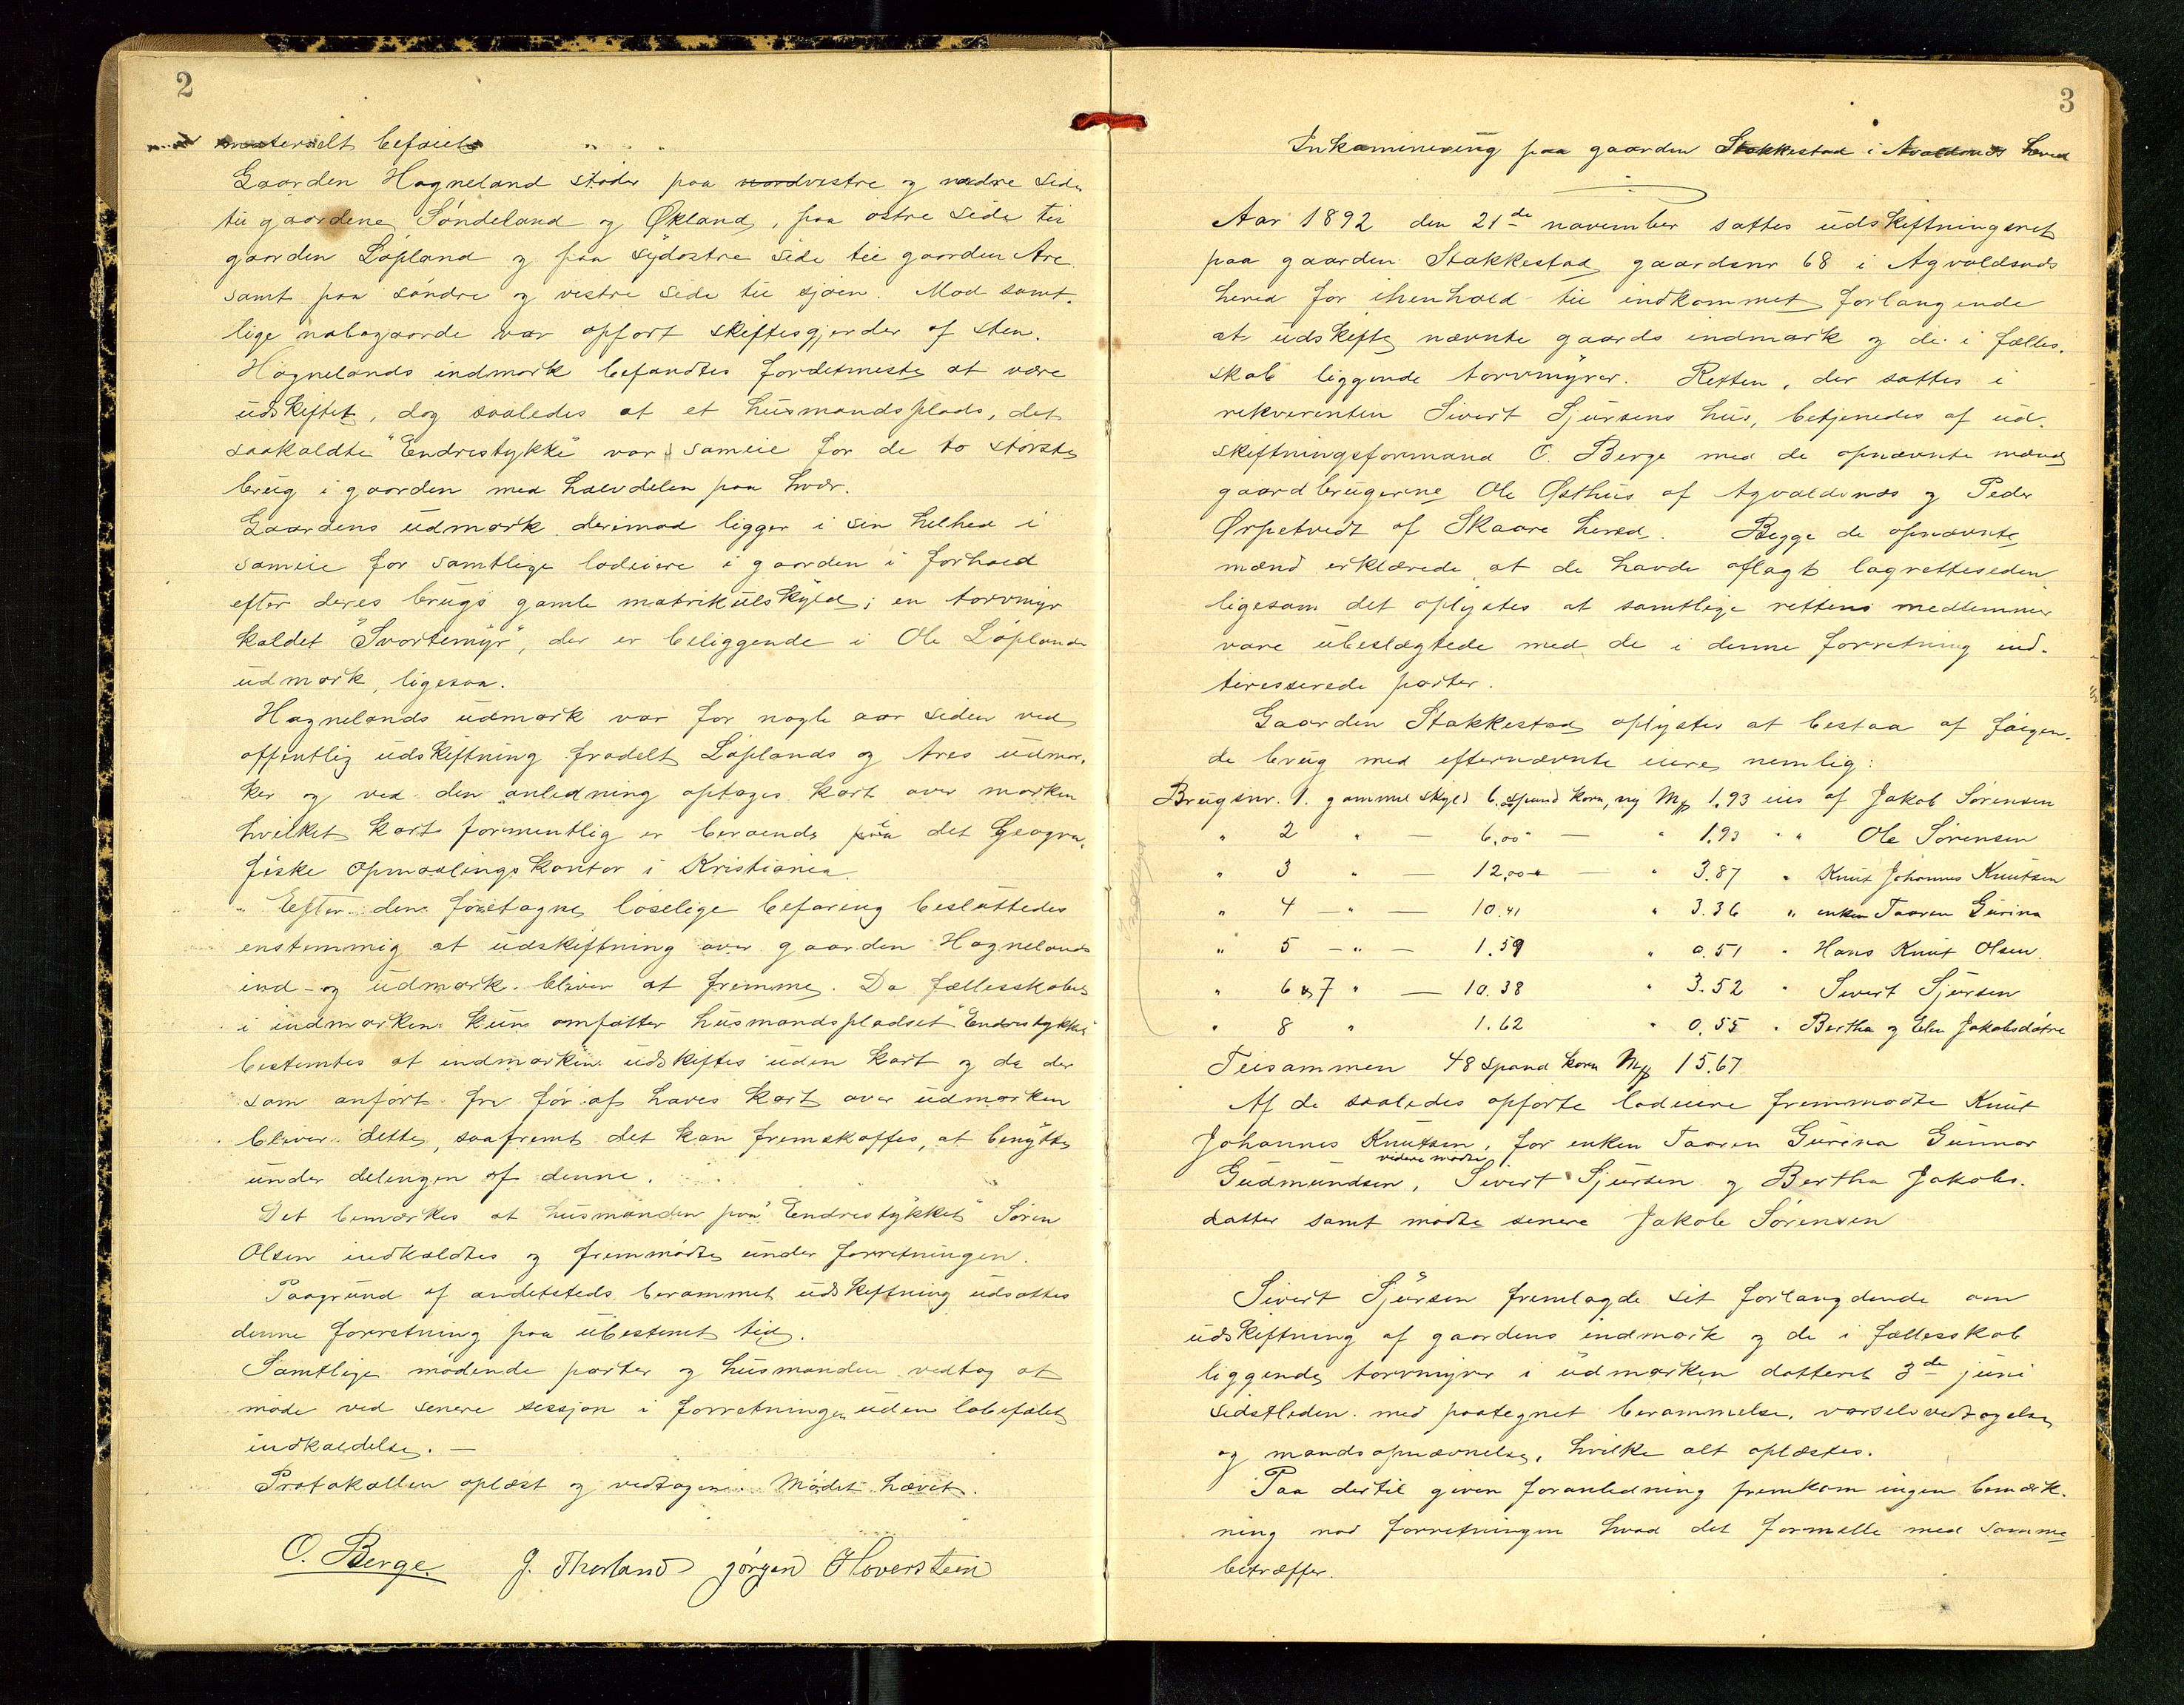 2
materielt befaiets
Gaarden Hagneland støder paa nordvestre og nordre side
til gaardene Søndeland og Økland, paa østre side til
gaarden Løpland og paa sydøstre side til gaarden Are
samt paa søndre og vestre side til sjøen. Mod samt-
lige nabogaarde var opført skiftesgjerder af sten.
Hagnelands indmark befandtes fordetmeste at være
udskiftet, dog saaledes at et husmandsplads, det
saakaldte "Endrestykke" var sameie for de to største
brug i gaarden med halvdelen paa hver.
Gaardens udmark derimod ligger i sin helhed i
sameie for samtlige lodeiere i gaarden i forhold
efter deres brugs gamle matrikulskyld; en torvmyr
kaldet "Svortemyr", der er beliggende i Ole Løplands
udmark, ligesaa.
Hagnelands udmark var for nogle aar siden ved
offentlig udskiftning fradelt Løplands og Ares udmar-
ker og ved den anledning optages kart over marken
hvilket kart formentlig er beroende paa det Geogra-
fiske Opmaalingskontor i Kristiania.
Efter den foretagne løselige befaring besluttedes
enstemmig at udskiftning over gaarden Hagnelands
ind- og udmark bliver at fremme. Da fællesskabet
i indmarken kun omfatter husmandspladset "Endrestykke"
bestemtes at indmarken udskiftes uden kart og da der
som anført fra før af haves kart over udmarken
bliver dette, saafremt det kan fremskaffes, at benytte
under delingen af denne.
Det bemærkes at husmanden paa "Endrestykket" Søren
Olsen indkaldtes og fremmødte under forretningen.
Paagrund af andetsteds berammet udskiftning udsattes
denne forretning paa ubestemt tid.
Samtlige mødende parter og husmanden vedtog at
møde ved senere sessjon i forretningen uden lobefalet
indkaldelse. —
Protokollen oplæst og vedtagen. Mødet hævet.
O. Berge. J. Thorland Jørgen Hoverstein
3
Inkaminering paa gaarden Stakkestad i Avaldsnes hered
Aar 1892 den 21de november sattes udskiftningsret
paa gaarden Stakkestad gaardsnr 68 i Agvaldsnds
hered for ihenhold til indkommet forlangende
at udskifte nævnte gaards indmark og de i fælles-
skab liggende torvmyrer. Retten, der sattes i
rekverenten Sivert Sjursens hus, betjenedes af ud-
skiftningsformand O. Berge med de opnævnte mænd
gaardbrugerne Ole Østhus af Agvaldsnæs og Peder
Ørpetvedt af Skaare hered. Begge de opnævnte
mænd erklærede at de havde aflagt lagretteseden
ligesom det oplystes at samtlige rettens medlemmer
vare ubeslægtede med de i denne forretning ind-
teresserede parter.
Gaarden Stakkestad oplystes at bestaa af følgen-
de brug med efternævnte eiere, nemlig:
Brugsnr. 1. gammel skyld 6 spand korn, ny M# 1.93 eies af Jakob Sørensen
" 2 " — 6,00 " — " 1.93 " " Ole Sørensen
" 3 " — 12,00 " — " 3.87 " Knut Johannes Knutsen
" 4 — " — 10.41 " 3.36 " enken Taaren Gurina
" 5 — " — 1.59 " 0.51 " Hans Knut Olsen.
" 6 og 7 " — 10.38 " 3.52 " Sivert Sjursen
" 8 " 1.62 " 0.55 " Bertha og Elen Jakobsdøtre
Tilsammen 48 spand korn M# 15.67
Af de saaledes opførte lodeiere fremmødte Knut
Johannes Knutsen, for enken Taaren Gurina Gunnar
videre mødte
Gudmundsen, Sivert Sjursen og Bertha Jakobs-
datter samt mødte senere Jakob Sørensen
Sivert Sjursen fremlagde sit forlangdende om
udskiftning af gaardens indmark og de i fællesskab
liggende torvmyrer i udmarken datteret 3de juni
sidstleden med paategnet berammelse, varselsvedtagelse
og mandsopnævnelse, hvilke alt oplæstes.
Paa dertil given foranledning fremkom ingen bemærk-
ning mod forretningen hvad det formelle med samme
betræffer.